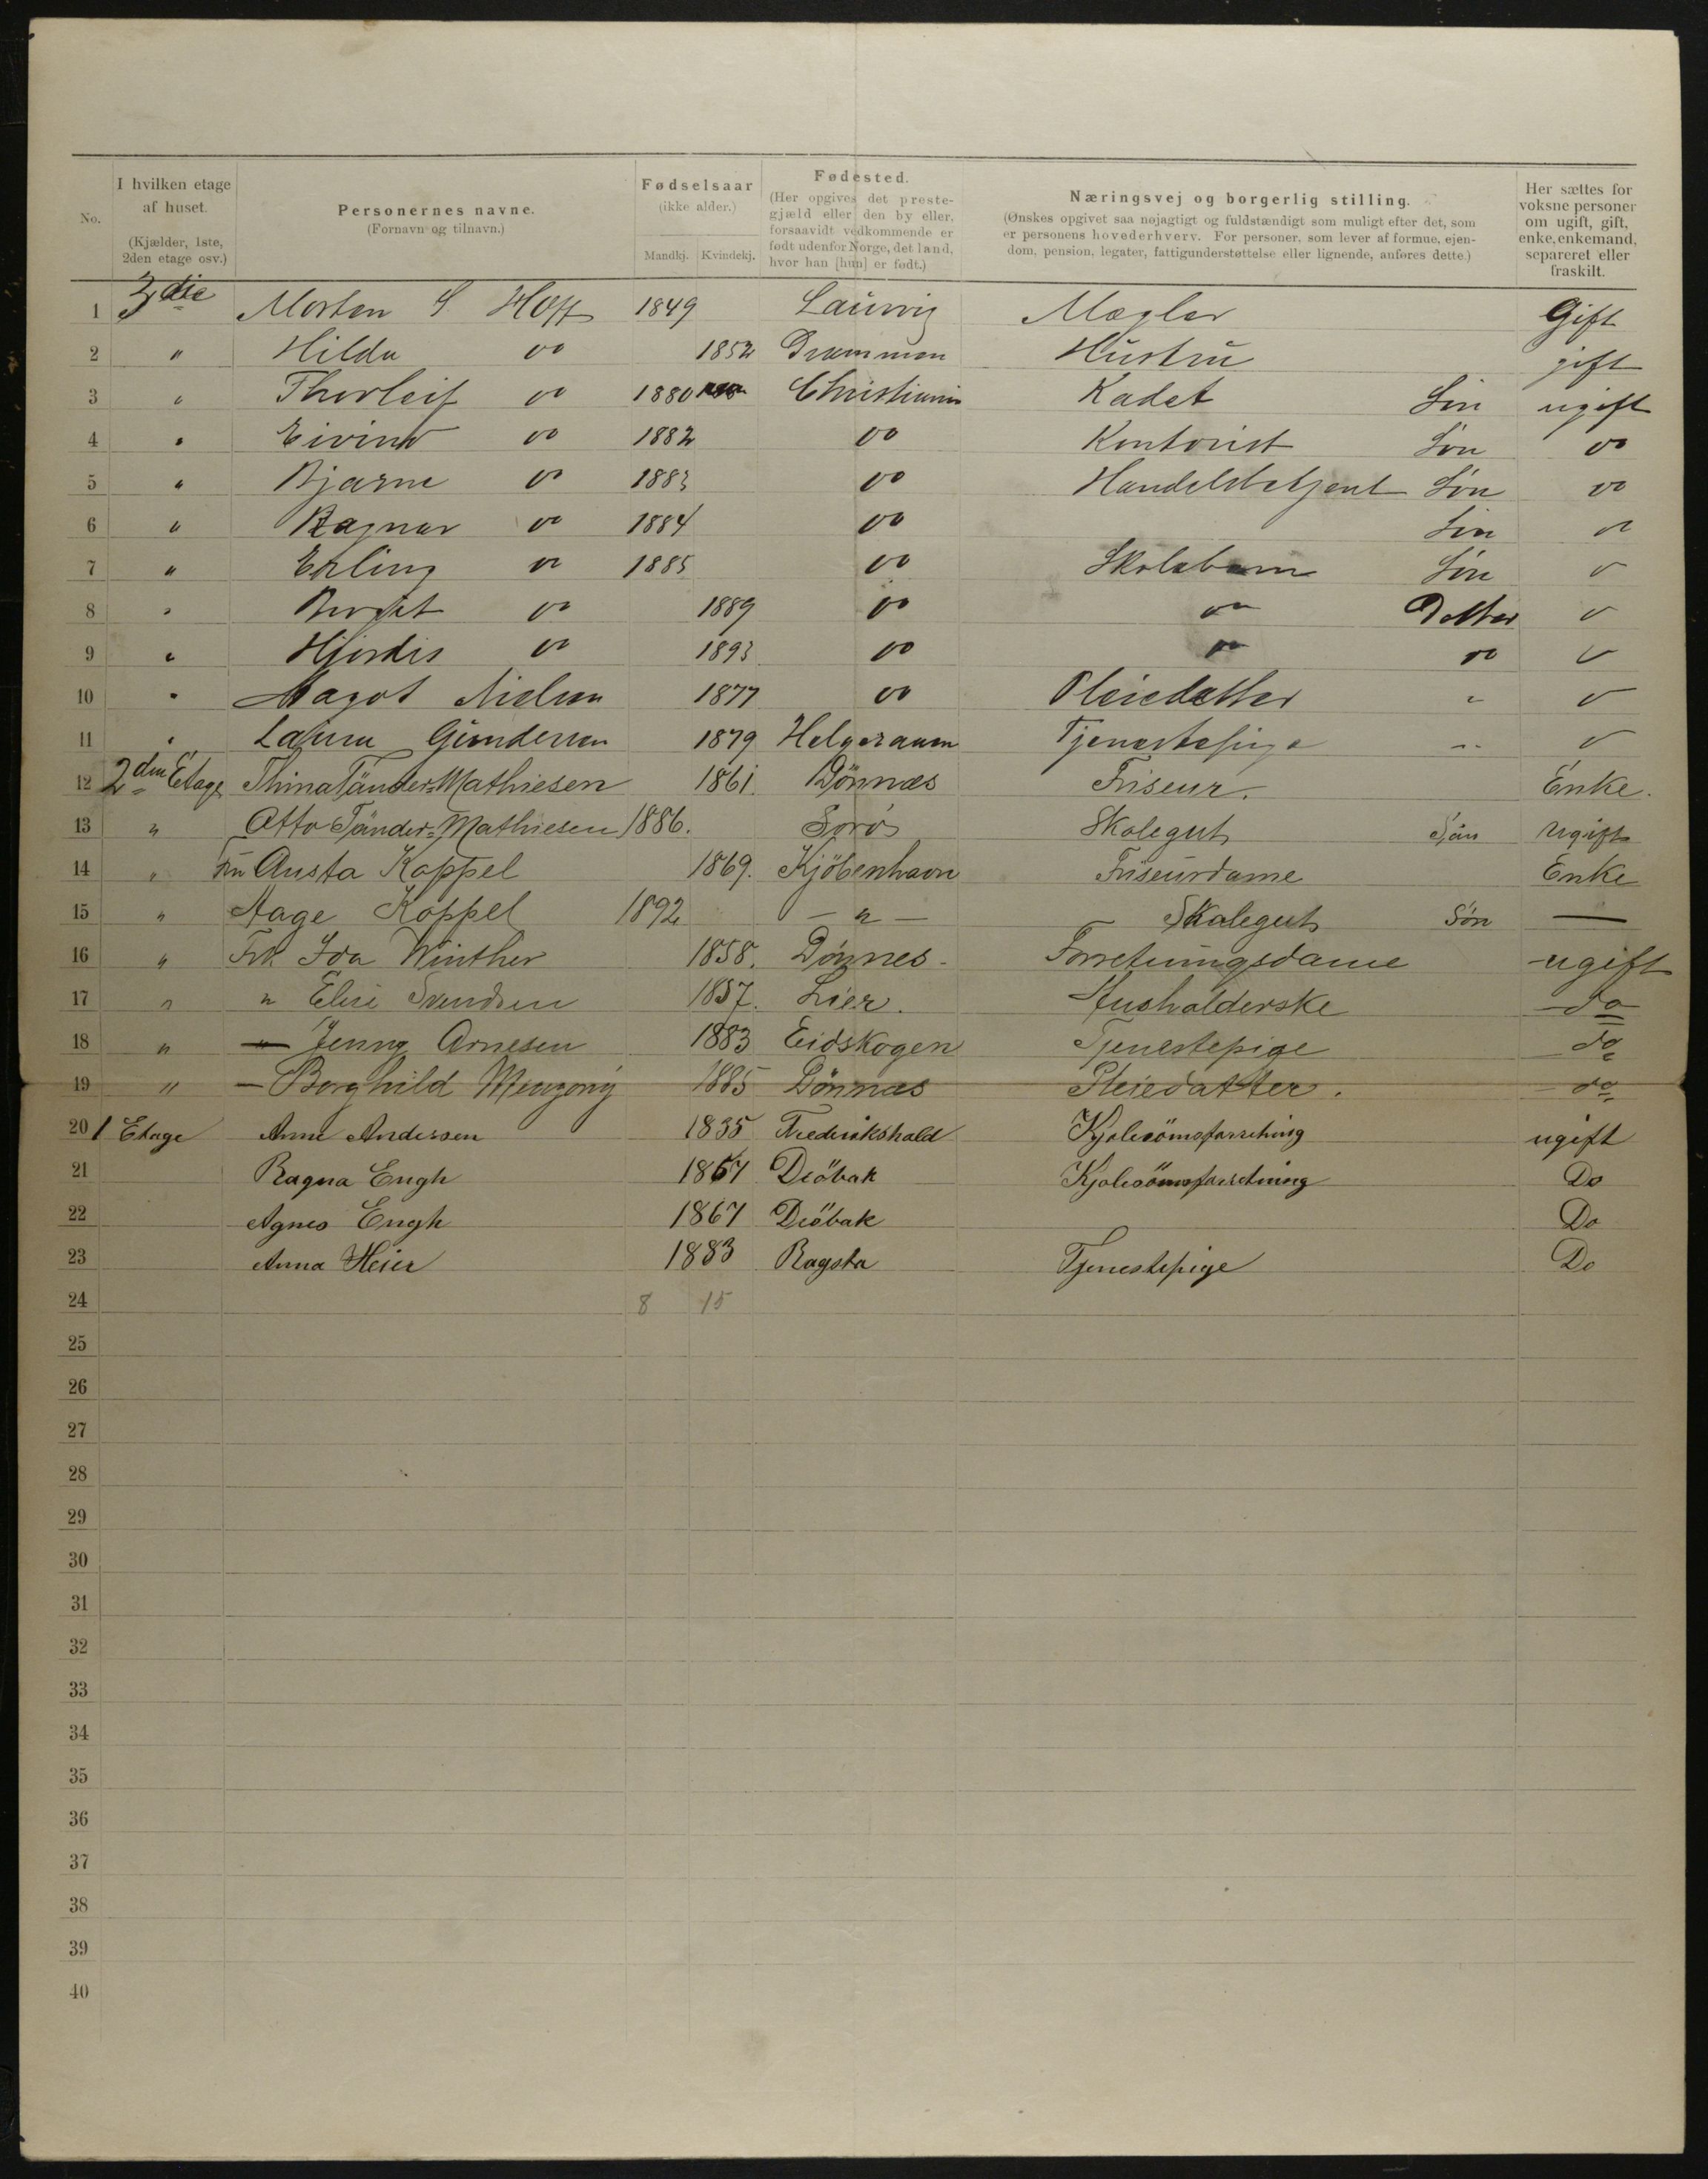 No.
I hvilken etage af huset.
(Kjælder, 1ste, 2den etage osv.)
Personernes navne.
(Fornavn og tilnavn.)
Fødselsaar
(ikke alder.)
Mandkj. Kvindekj.
Fødested.
(Her opgives det preste-
gjæld eller den by eller,
forsaavidt vedkommende er
født udenfor Norge, det land,
hvor han [hun] er født.)
Næringsvej og borgerlig stilling.
(Ønskes opgivet saa nøjagtigt og fuldstændigt som muligt efter det, som
er personens hovederhverv. For personer, som lever af formue, ejen-
dom, pension, legater, fattigunderstøttelse eller lignende, anføres dette.)
Her sættes for
voksne personer
om ugift, gift,
enke, enkemand,
separeret eller
fraskilt.
1 3die Morten S Hoff 1849 Laurvig Mægler Gift
2 " Hilda do 1852 Drammen Hustru gift
3 " Thorleif do 1880 Christiania Kadet Søn ugift
4 " Eivind do 1882 do Kontorist Søn do
5 " Bjarne do 1883 do Handelsbetjent Søn do
6 " Ragnar do 1884 do Søn do
7 " Erling do 1885 do Skolebarn Søn do
8 " Bergit do 1889 do do Datter do
9 " Hjördis do 1893 do do do do
10 " Magot Nielsen 1877 do Pleiedatter " do
11 " Laura Gundersen 1879 Helgeraaen Tjenestepige " do
12 2den Etage Thina Tänder=Mathiesen 1861. Dönnæs Friseur. Enke.
13 " Otto Tänder=Mathiesen 1886. Sorö Skolegut Sön Ugift
14 " Fru Austa Koppel 1869. Kjöbenhavn Friseurdame Enke
15 " Aage Koppel 1892 — " — Skolegut Sön —
16 " Frk Ida Winther 1858. Dönnes - Forretningsdame ugift
17 " " Elise Svendsen 1857. Lier. Husholderske do
18 " — Jenny Arnesen 1883 Eidskogen Tjenestepige do
19 " — Borghild 1885 Dönnæs Pleiedatter. do
20 1 Etage Anne Andersen 1835 Frederikshald Kjolesömsforretning ugift
21 Ragna Engh 1867 Dröbak Kjolesömsforretning Do
22 Agnes Engh 1867 Dröbak Do
23 Anna Heier 1883 Ragsta Tjenestepige Do
24 8 15
25
26
27
28
29
30
31
32
33
34
35
36
37
38
39
40